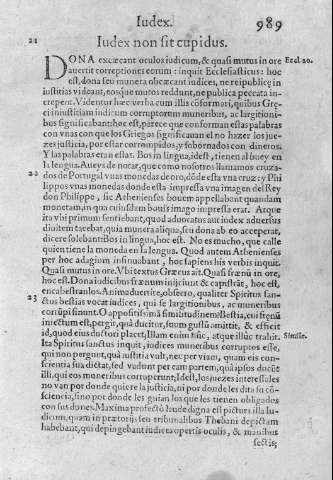 Iudex. 989
21 Iudex non sit cupidus.
DONA excæcant oculos iudicum, & quasi mutus in ore Eccl. 20.
auertit correptiones eorum: inquit Ecclesiasticus: hoc
est, dona seu munera obcæcant iudices, ne reipublicę in
iustitias videant, eosque mutos reddunt, ne publica peccata in-
crepent. Videntur hæc verba cum illis cõformari, quibus Grę-
ci iniustitiam iudicum corruptorum muneribus, ac largitioni-
bus significabant: hoc est, parece que conforman estas palabras
con vnas con que los Griegos significauan el no hazer los jue-
zes justicia, por estar corrompidos, y sobornados con dineros.
Y las palabras eran estas. Bos in lingua, idest, tienen al buey en
la lengua. Aueys de notar, que como nosotros llamamos cruza-
22 dos de Portugal vnas monedas de oro, dõde esta vna cruz: y Phi
lippos vnas monedas donde esta impressa vna imagen del Rey
don Philippe, sic Athenienses bouem appellabant quandam
monetam, in qua cuiusdam bouis imago impressa erat. Atque
ita vbi primum sentiebant, quod aduocatus aut iudex aduersus
diuitem tacebat, quia munera aliqua, seu dona ab eo acceperat,
dicere solebant: Bos in lingua, hoc est. No es mucho, que calle
quien tiene la moneda en la lengua. Quod autem Athenienses
per hoc adagium insinuabant, hoc sapiens his verbis inquit.
Quasi mutus in ore. Vbi textus Græcus ait. Quasi frænũ in ore,
hoc est. Dona iudicibus frænum iniiciunt & capistrãt, hoc est,
encabestranlos. Animaduertite, obsecro, qualiter Spiritus san-
23 ctus bestias vocat iudices, qui se largitionibus, ac muneribus
corrũpi sinunt. O appositissimã similitudinem! Bestia, cui frenũ
iniectum est, pergit, quà ducitur, suum gustũ amittit, & efficit
id, quod eius ductori placet, Illam enim hùc, atque illùc trahit. Simile.
Ita Spiritus sanctus inquit, iudices muneribus corruptos esse,
qui non pergunt, quà iustitia vult, nec per viam, quam eis con-
scientia sua dictat, sed vadunt per eam partem, quà ipsos ducũt
illi, qui eos muneribus corruperunt, idest, los juezes interessales
no van por donde quiere la justicia, ni por donde les dita su cõ-
sciencia, sino por donde los guian los que les tienen obligados
con sus dones. Maxima profectò laude digna est pictura illa Iu-
dicum, quam in prætorijs seu tribunalibus Thebani depictam
habebant, qui depingebant iudices opertis oculis, & manibus
sectis;